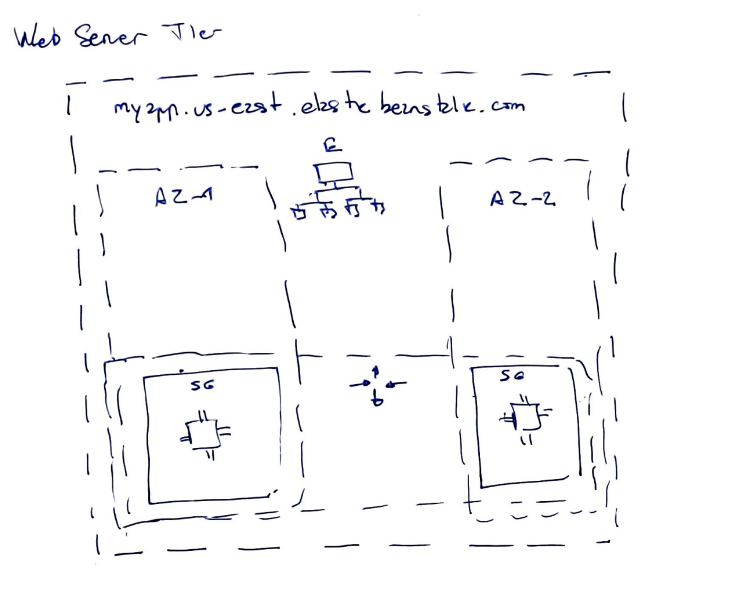 Web Server Tier
myapp.us-east.elastic beanstalk.com
AZ-1
AZ-2
SG
SG